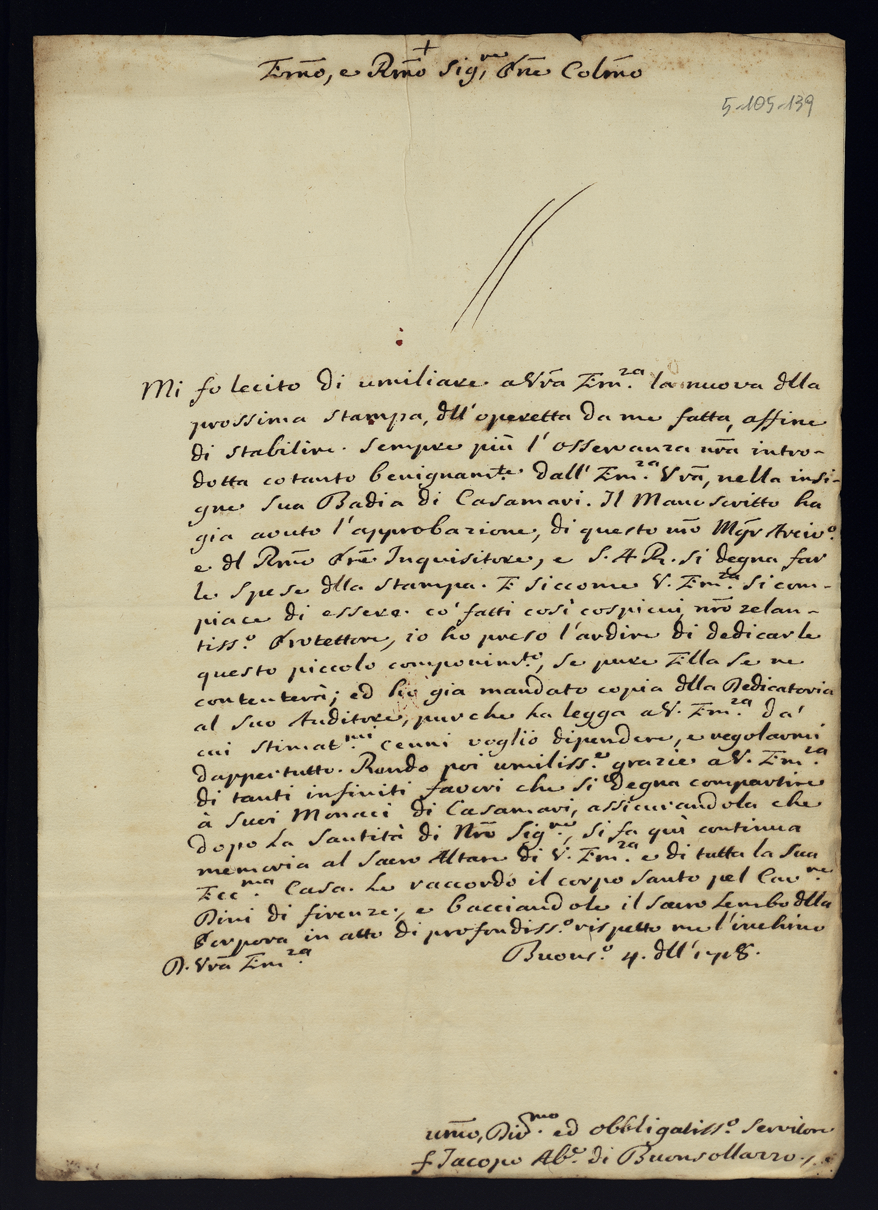 +
Em̃o, e Rm̃o Sig.re Prñe Colm̃o
5-105-139
Mi fo lecito di umiliare a Vrã Em.za la nuova dlla
prossima stampa, dll'operetta da me fatta, affine
di stabilire sempre più l'osservanza nrã intro-
dotta cotanto benignam.te dall'Em.za Vrã, nella insi-
gne sua Badia di Casamari. Il Manoscritto ha
gia avuto l'approbazione, di questo nrõ Mgr Arciv.o
e dl Rm̃o Prẽ Inquisitore, e S. A. R. si degna far
le spese dlla stampa. E siccome V. Em.za si com-
piace di essere co' fatti così cospicui, nrõ zelan-
tiss.o Protettore, io ho preso l'ardire di dedicarle
questo piccolo componim.to, se pure Ella se ne
contenterà; ed hò gia mandato copia dlla Dedicatoria
al suo Auditore, purche la legga a V. Em.za da'
cui stimat.mi cenni voglio dipendere, e regolarmi
dappertutto. Rendo poi umiliss.e grazie a V. Em.za
di tanti infiniti favori che si degna compartire
à suoi Monaci di Casamari, assicurandola che
dopo la Santità di Nrõ Sig.re, si fa quì continua
memoria al Sacro Altare di V. Em.za e di tutta la sua
Ecc.ma Casa. Le raccordo il corpo santo pel Cav.re
Dini di firenze, e bacciandole il sacro Lembo dlla
Porpora in atto di profondiss.o rispetto me l'inchino
D. Vrã Em.za
Buons.o 4. dll'1718.
um̃o, Div.mo ed obbligatiss.o Servitore
f Iacopo Ab.e di Buonsollazzo